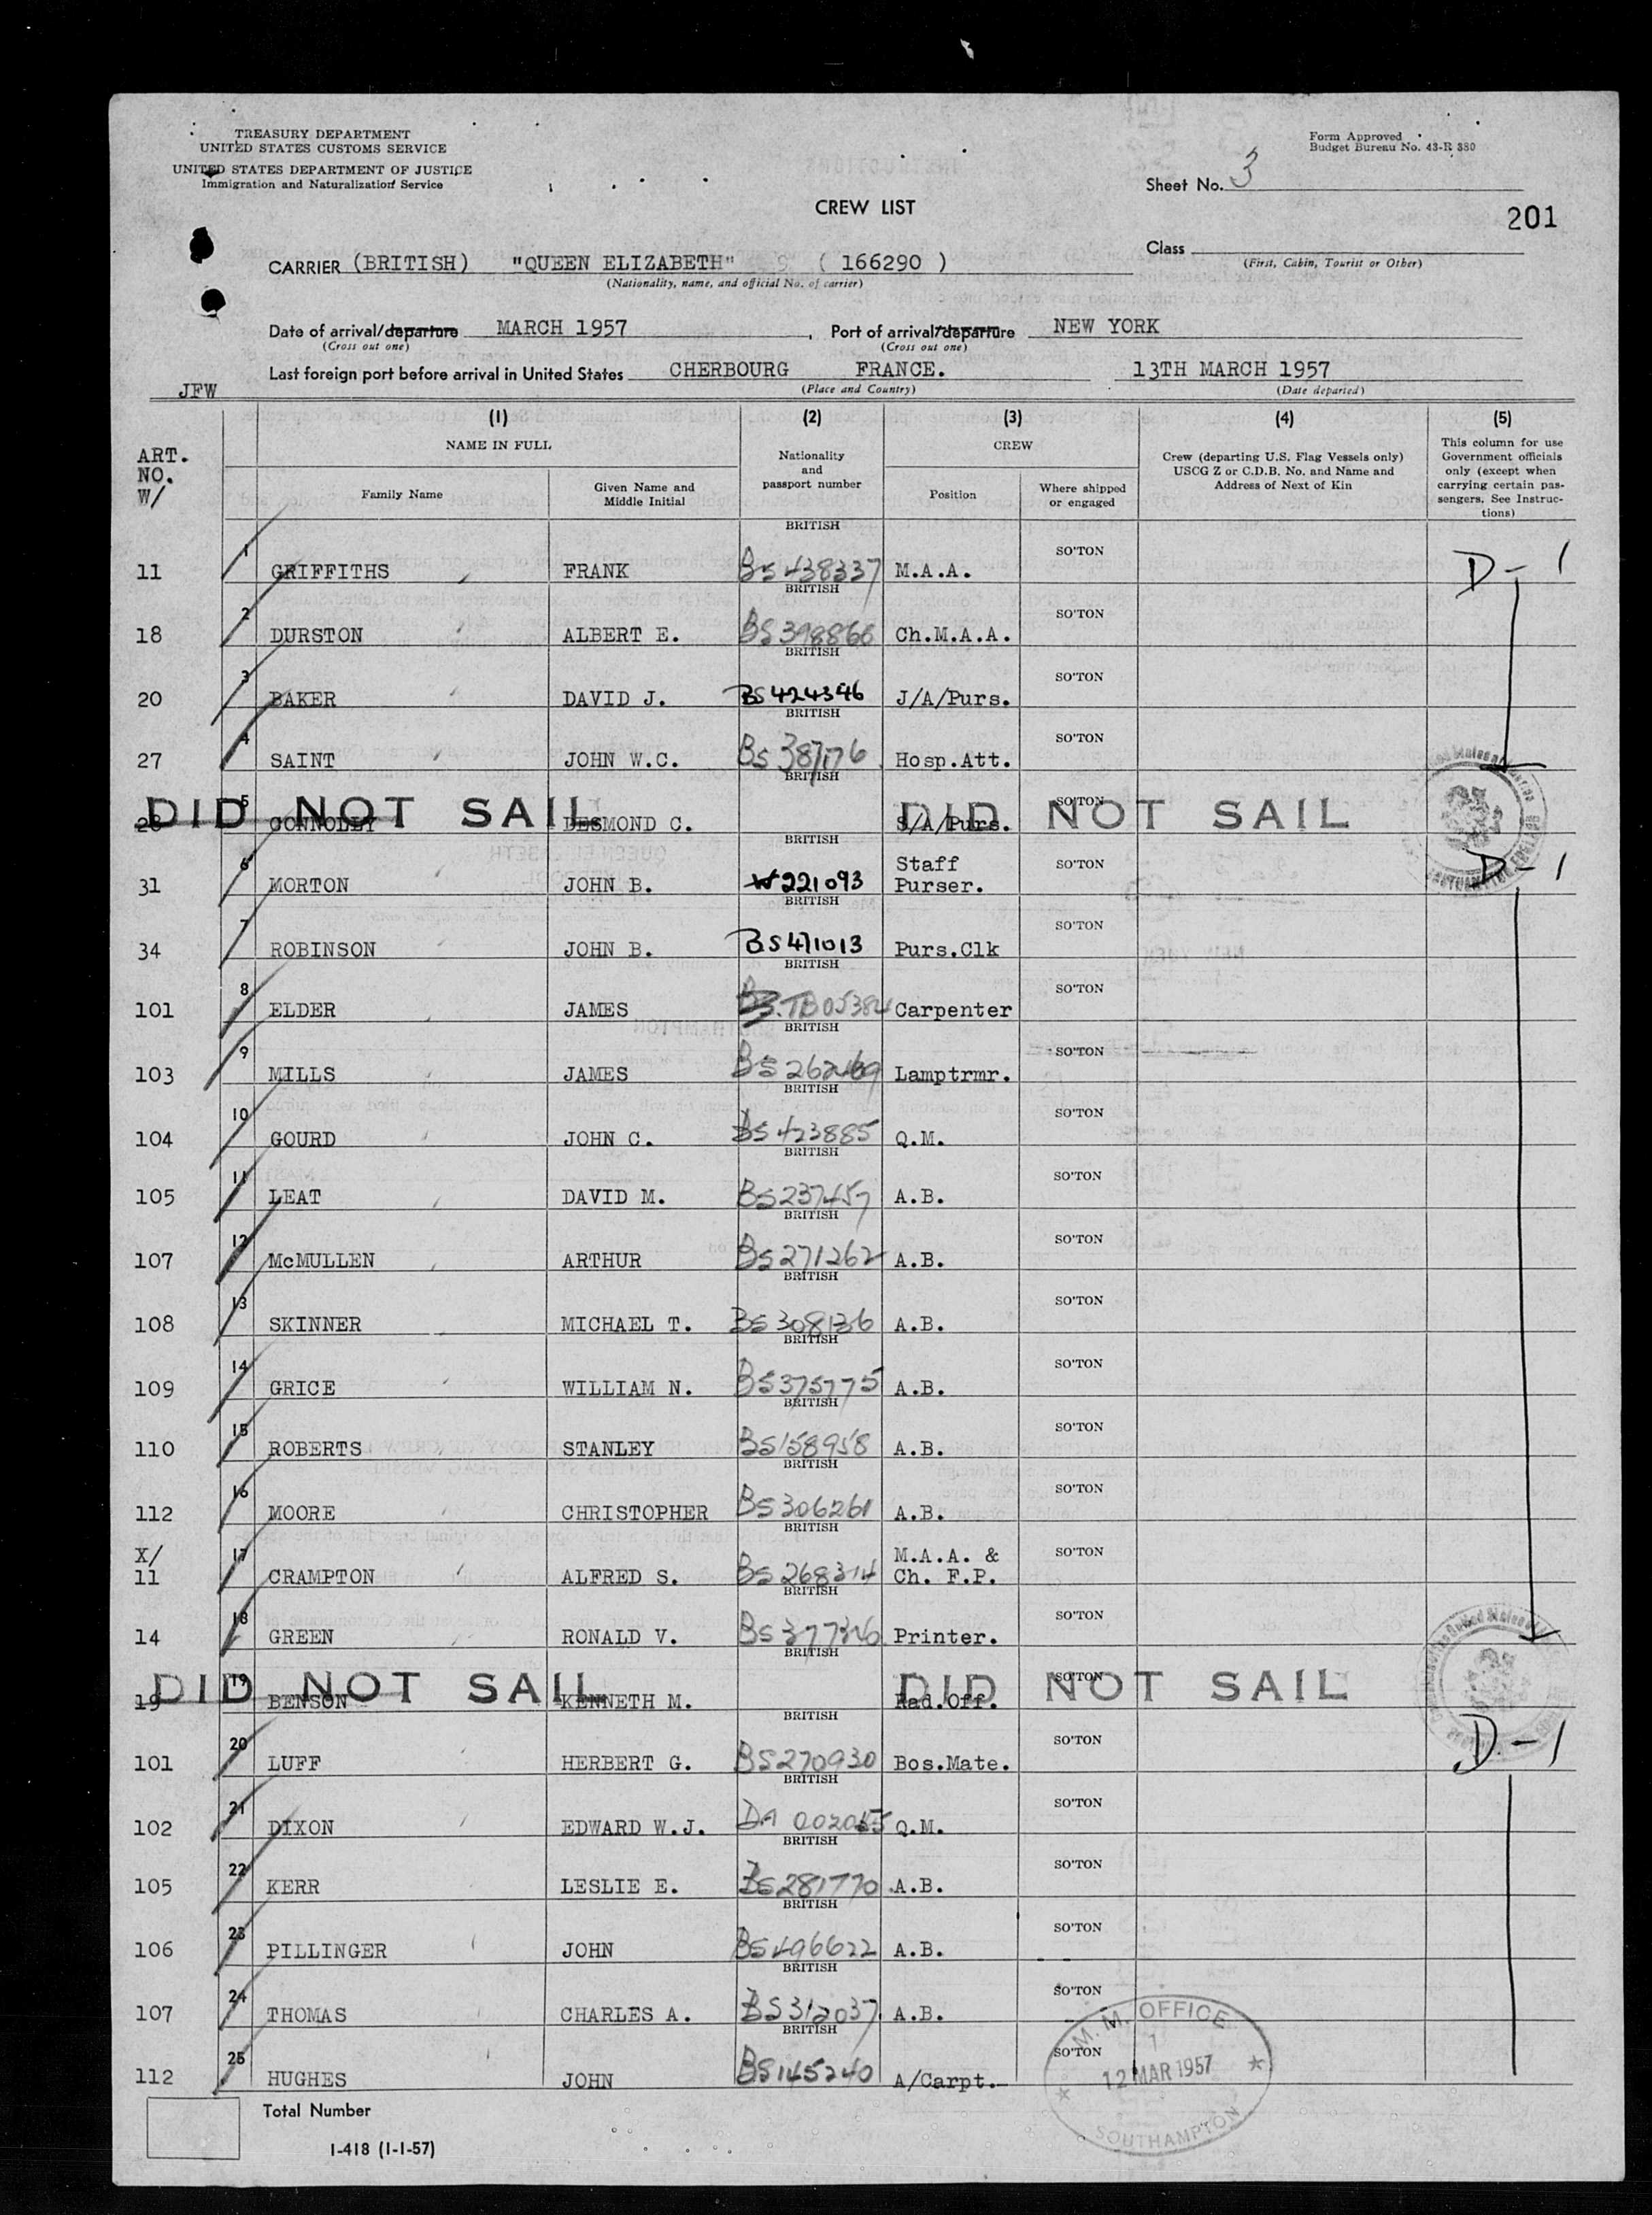 TREASURY DEPARTMENT
UNITED STATES CUSTOMS SERVICE
UNITED STATES DEPARTMENT OF JUSTICE
Immigration and Naturalization Service
Form Approved
Budget Bureau No. 43-R 380
Sheet No. 3
CREW LIST
201
Class
(First, Cabin, Tourist or Other)
CARRIER (BRITISH) "QUEEN ELIZABETH" ( 166290 )
(Nationality, name, and official No. of carrier)
Date of arrival/departure MARCH 1957, Port of arrival/departure NEW YORK
(Cross out one) (Cross out one)
Last foreign port before arrival in United States CHERBOURG FRANCE. 13TH MARCH 1957
(Place and Country) (Date departed)
JFW
ART.
NO.
W/
(1) (2) (3) (4) (5)
NAME IN FULL
Family Name
Given Name and
Middle Initial
Nationality
and
passport number
CREW
Position
Where shipped
or engaged
Crew (departing U.S. Flag Vessels only)
USCG Z or C.D.B. No. and Name and
Address of Next of Kin
This column for use
Government officials
only (except when
carrying certain pas-
sengers. See Instruc-
tions)
BRITISH
11 1 GRIFFITHS FRANK BS 438337 M.A.A. SO'TON D-1
BRITISH
18 2 DURSTON ALBERT E. BS 398866 Ch.M.A.A. SO'TON
BRITISH
20 3 BAKER DAVID J. BS 424346 J/A/Purs. SO'TON
BRITISH
27 4 SAINT JOHN W.C. BS 387176 Hosp.Att. SO'TON
BRITISH
DID NOT SAIL DID NOT SAIL
28 5 CONNOLLY DESMOND C. S/A/Purs. SO'TON
BRITISH
31 6 MORTON JOHN B. W 221093 Staff Purser. SO'TON D-1
BRITISH
34 7 ROBINSON JOHN B. BS 471013 Purs.Clk SO'TON
BRITISH
101 8 ELDER JAMES TB05384 Carpenter SO'TON
BRITISH
103 9 MILLS JAMES BS 262469 Lamptrmr. SO'TON
BRITISH
104 10 GOURD JOHN C. BS 423885 Q.M. SO'TON
BRITISH
105 11 LEAT DAVID M. BS 237457 A.B. SO'TON
BRITISH
107 12 McMULLEN ARTHUR BS 271262 A.B. SO'TON
BRITISH
108 13 SKINNER MICHAEL T. BS 308136 A.B. SO'TON
BRITISH
109 14 GRICE WILLIAM N. BS 375775 A.B. SO'TON
BRITISH
110 15 ROBERTS STANLEY BS 158958 A.B. SO'TON
BRITISH
112 16 MOORE CHRISTOPHER BS 306261 A.B. SO'TON
BRITISH
X/
11 17 CRAMPTON ALFRED S. BS 268314 M.A.A. & Ch. F.P. SO'TON
BRITISH
14 18 GREEN RONALD V. BS 377346 Printer. SO'TON
BRITISH
DID NOT SAIL DID NOT SAIL
19 19 BENSON KENNETH M. Rad.Off. SO'TON
BRITISH
101 20 LUFF HERBERT G. BS 270930 Bos.Mate. SO'TON D-1
BRITISH
102 21 DIXON EDWARD W.J. DA Q.M. SO'TON
BRITISH
105 22 KERR LESLIE E. BS 281770 A.B. SO'TON
BRITISH
106 23 PILLINGER JOHN BS 496622 A.B. SO'TON
BRITISH
107 24 THOMAS CHARLES A. BS 312037 A.B. SO'TON
BRITISH
112 25 HUGHES JOHN BS 145240 A/Carpt. SO'TON
M. M. OFFICE
1
12 MAR 1957
SOUTHAMPTON
Total Number
I-418 (1-1-57)